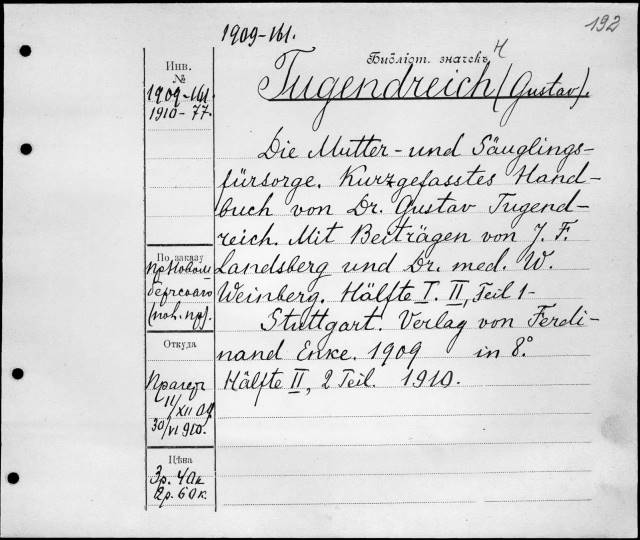 192
1909-161.
Библіот. значекъ Ч
Tugendreich (Gustav).
Инв.
№
1909-161
1910-77.
Die Mutter- und Säuglings-
fürsorge. Kurzgefasstes Hand-
buch von Dr. Gustav Tugend-
reich. Mit Beiträgen von J. F.
Landsberg und Dr. med. W.
Weinberg. Hälfte I. II, Teil 1-
Stuttgart. Verlag von Ferdi-
nand Enke. 1909 in 8°.
Hälfte II, 2 Teil. 1910.
По заказу
Откуда
11/XII 09
30/VI 910.
Цѣна
3р. 40к
2р. 60к.